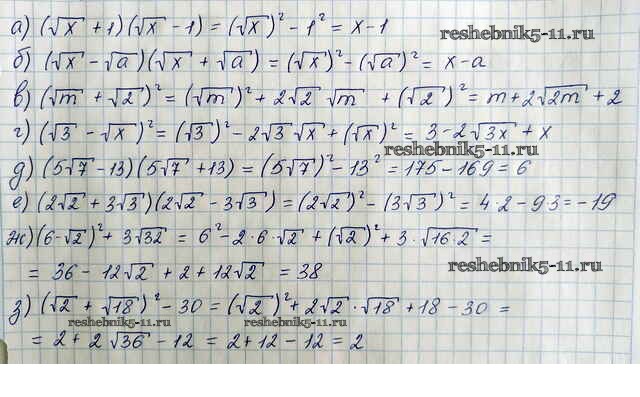 а) (√x + 1)(√x - 1) = (√x)² - 1² = x - 1
reshebnik5-11.ru
б) (√x - √a)(√x + √a) = (√x)² - (√a)² = x - a
в) (√m + √2)² = (√m)² + 2√2 √m + (√2)² = m + 2√2m + 2
г) (√3 - √x)² = (√3)² - 2√3√x + (√x)² = 3 - 2√3x + x
reshebnik5-11.ru
д) (5√7 - 13)(5√7 + 13) = (5√7)² - 13² = 175 - 169 = 6
е) (2√2 + 3√3)(2√2 - 3√3) = (2√2)² - (3√3)² = 4·2 - 9·3 = -19
ж) (6 - √2)² + 3√32 = 6² - 2·6·√2 + (√2)² + 3·√16·2 =
= 36 - 12√2 + 2 + 12√2 = 38
reshebnik5-11.ru
з) (√2 + √18)² - 30 = (√2)² + 2√2·√18 + 18 - 30 =
reshebnik5-11.ru reshebnik5-11.ru
= 2 + 2√36 - 12 = 2 + 12 - 12 = 2